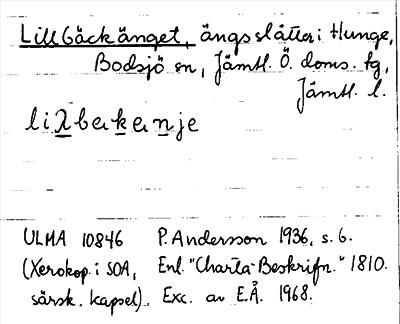 Lillbäckänget, ängsslåtter i Hunge,
Bodsjö sn, Jämtl. Ö. doms. tg,
Jämtl. l.
liλbekenje
ULMA 10846 P. Andersson 1936, s. 6.
(Xerokop. i SOA, Enl. "Charta-Beskrifn." 1810.
särsk. kapsel). Exc. av E.Å. 1968.